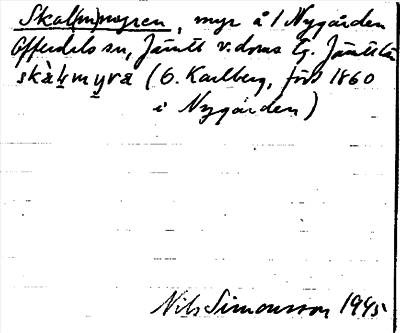 Skal(m)myren, myr å 1 Nygården
Offerdals sn, Jämtl v. doms lg. Jämtl. län
skàl̥m y̲ra (G. Karlberg, född 1860
i Nygården)
Nils Simonsson 1945